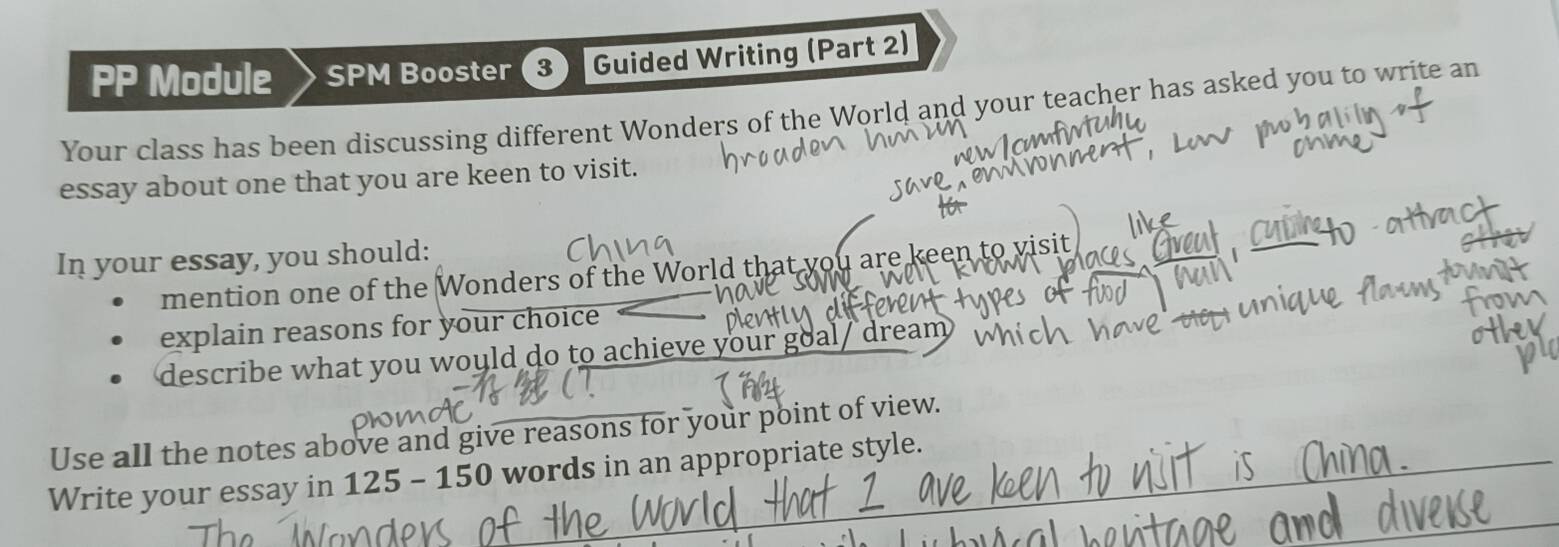 PP Module SPM Booster 3 Guided Writing (Part 2)
Your class has been discussing different Wonders of the World and your teacher has asked you to write an
essay about one that you are keen to visit.
broaden
new/comfortable
save, environment, Low probability of
crime
In your essay, you should:
China
• mention one of the Wonders of the World that you are keen to visit
have some well known places like Great, to attract
other
• explain reasons for your choice
plently different types of food, which have unique
tourist
from
other
• describe what you would do to achieve your goal/ dream
存钱
了解
Use all the notes above and give reasons for your point of view.
Write your essay in 125 – 150 words in an appropriate style.
The Wonders of the World that I are keen to visit is China.
heritage and diverse